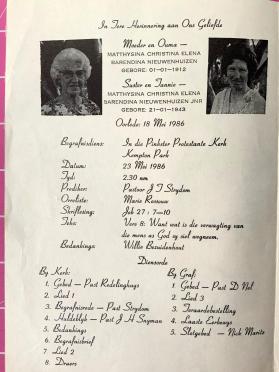 In Tere Herinnering aan Ons Geliefde
Moeder en Ouma —
MATTHYSINA CHRISTINA ELENA
BARENDINA NIEUWENHUIZEN
GEBORE: 01-01-1912
Suster en Tannie —
MATTHYSINA CHRISTINA ELENA
BARENDINA NIEUWENHUIZEN JNR
GEBORE: 21-01-1943
Oorlede: 18 Mei 1986
Begrafnisdiens: In die Pinkster Protestante Kerk
Kempton Park
Datum: 23 Mei 1986
Tyd: 2.30 nm
Prediker: Pastoor J T Strydom
Orreliste: Marie Rossouw
Skriflesing: Job 27 : 7—10
Teks: Vers 8: Want wat is die verwagting van
die mens as God sy siel wegneem.
Bedankings: Willie Bezuidenhout
Diensorde
By Kerk:
1. Gebed — Past Redelinghuys
2. Lied 1
3. Begrafnisrede — Past Strydom
4. Huldeblyk — Past J H Snyman
5. Bedankings
6. Begrafnisbrief
7. Lied 2
8. Draers
By Graf:
1. Gebed — Past D Nel
2. Lied 3
3. Teraardebestelling
4. Laaste Eerbewys
5. Slotgebed — Nick Maritz